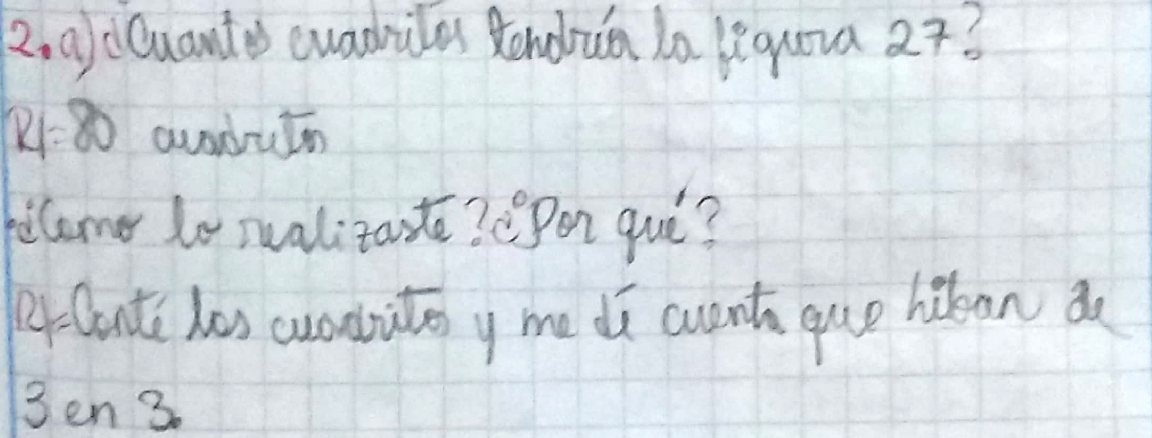 2. a) ¿Cuantos cuadritos tendría la figura 27?
R/= 80 cuadritos
¿Como lo realizaste? ¿Por qué?
R/= Conté los cuadritos y me dí cuenta que hiban de
3 en 3.